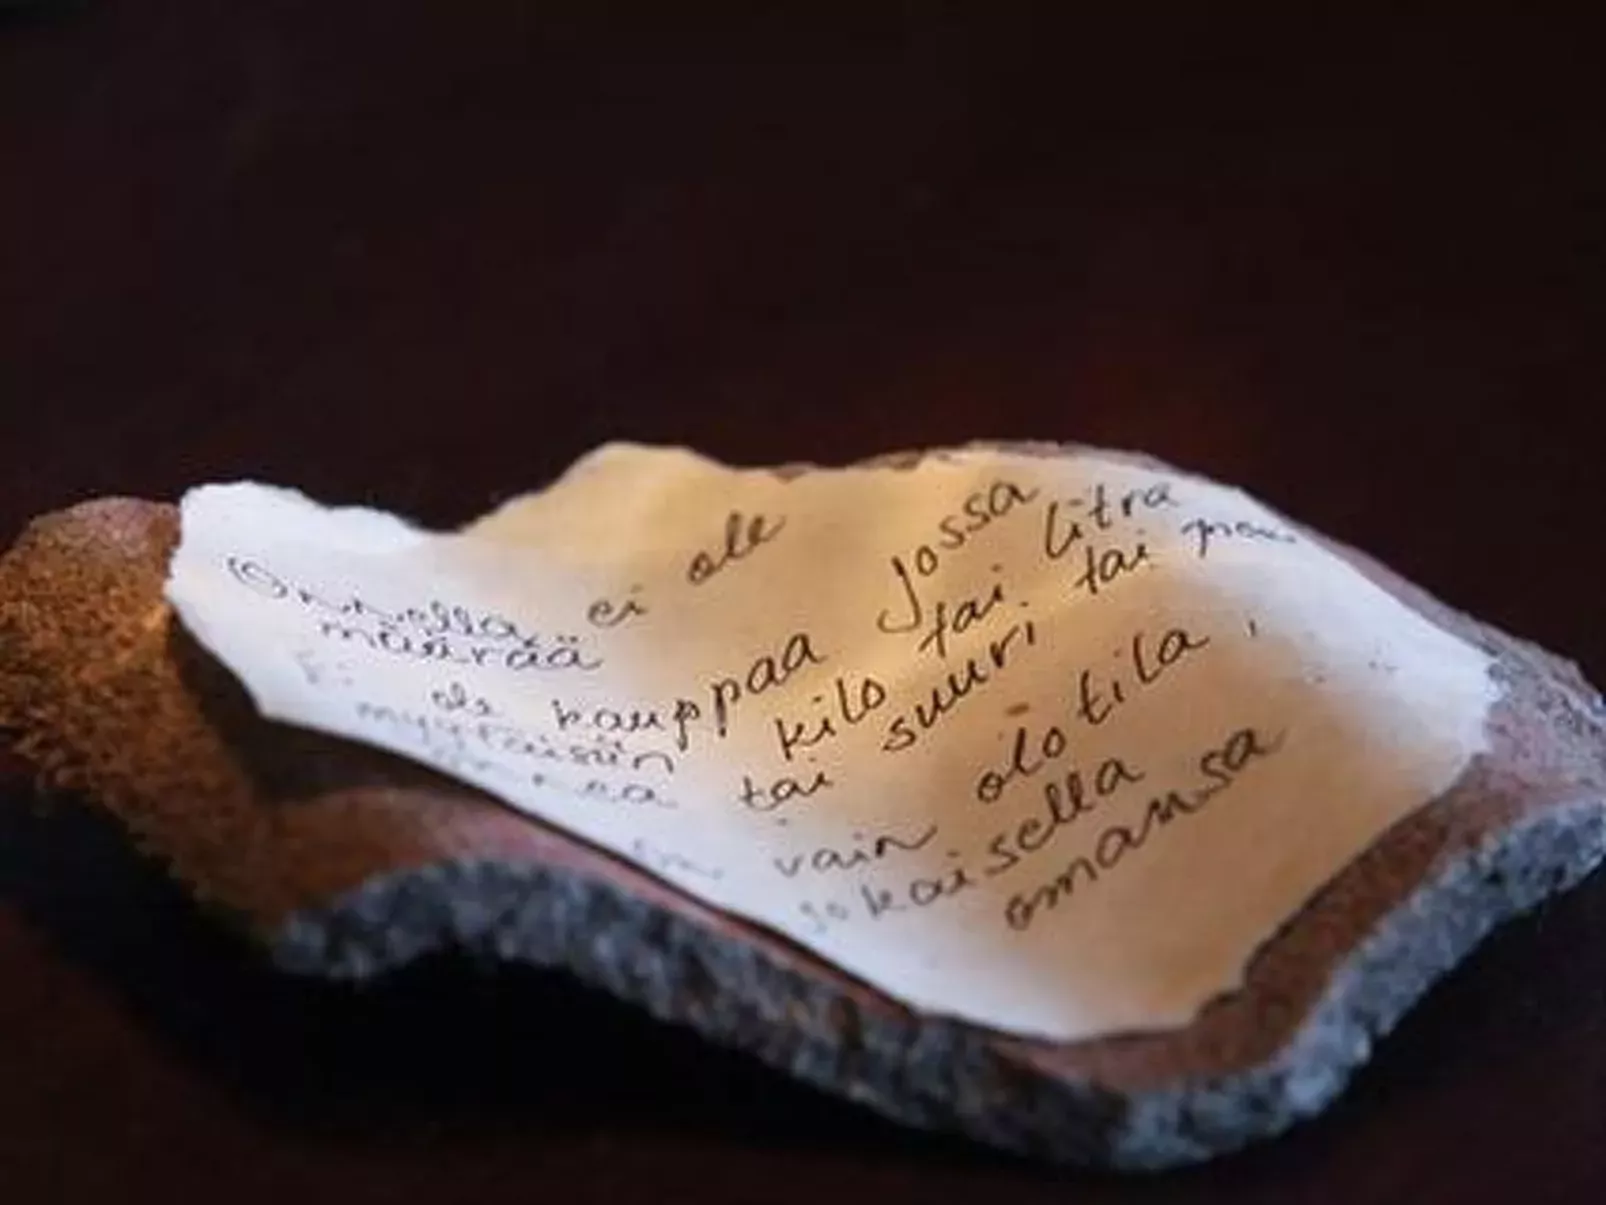 Onnella ei ole
määrää
Ei ole kauppaa Jossa
myytäisiin kilo tai litra
onnea tai suuri tai pieni
on vain olotila,
jokaisella omansa